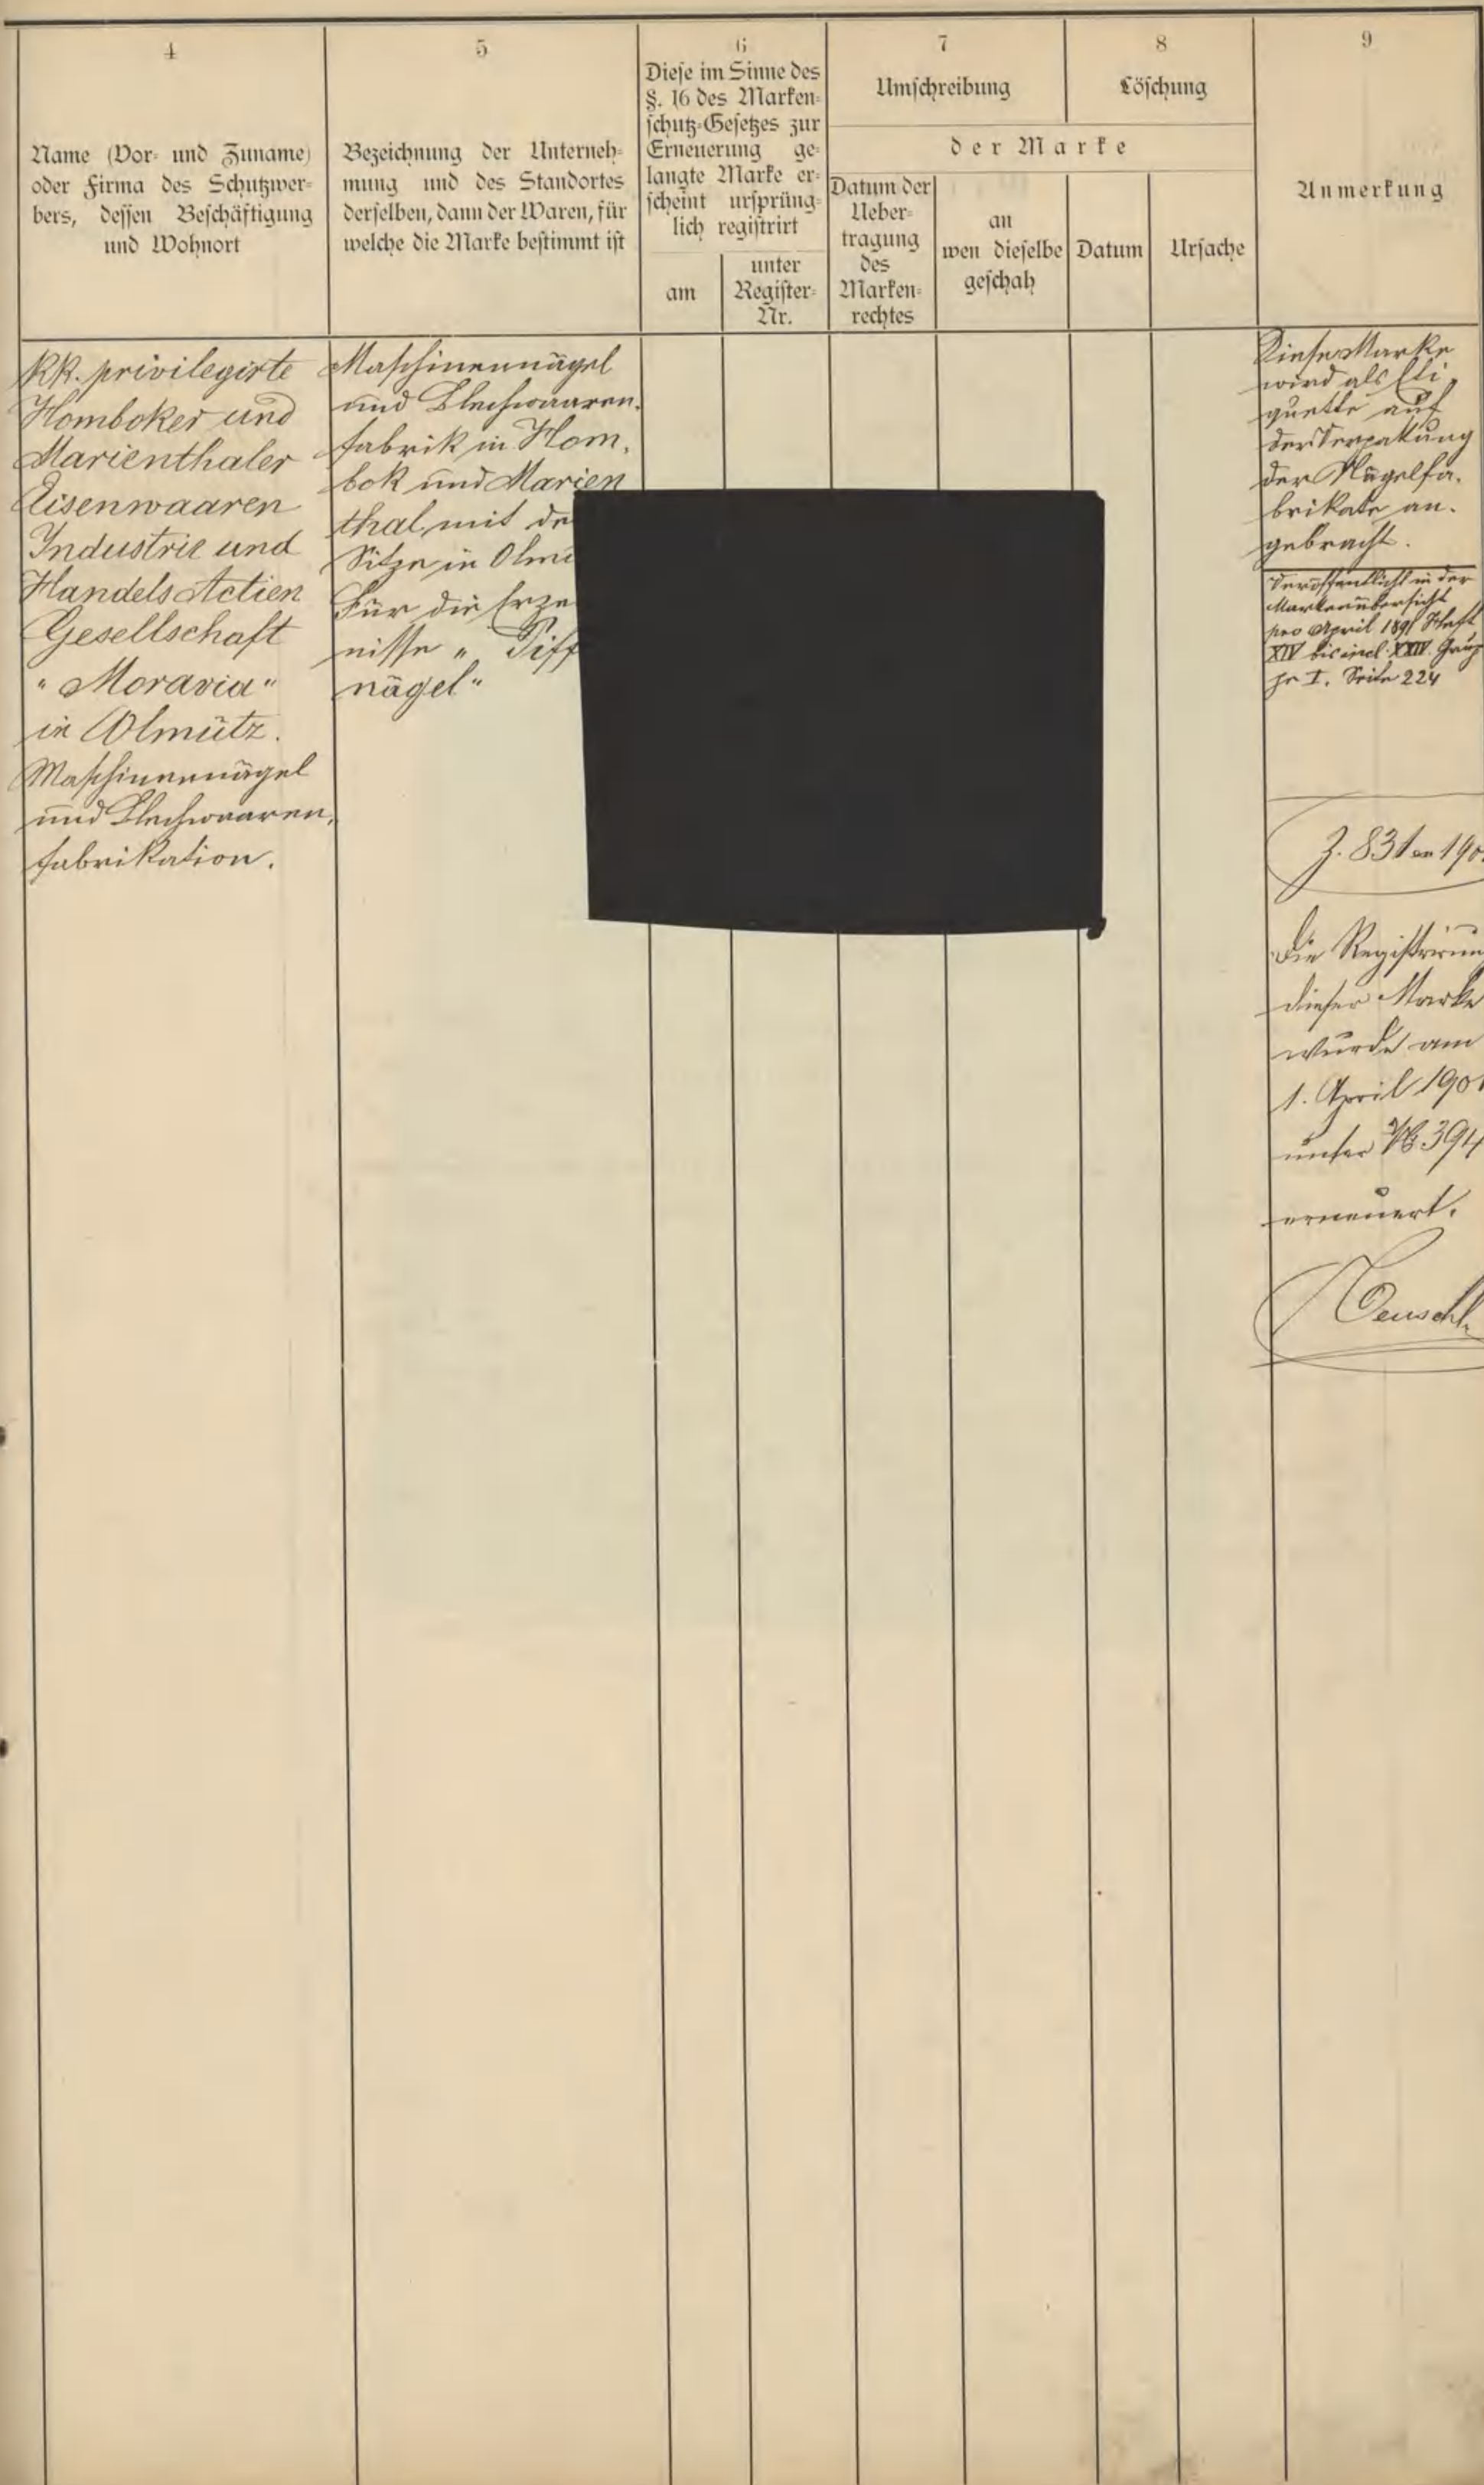 4
Name (Vor- und Zuname)
oder Firma des Schutzwer-
bers, dessen Beschäftigung
und Wohnort
5
Bezeichnung der Unterneh-
mung und des Standortes
derselben, dann der Waren, für
welche die Marke bestimmt ist
6
Diese im Sinne des
§. 16 des Marken-
schutz-Gesetzes zur
Erneuerung ge-
langte Marke er-
scheint ursprüng-
lich registrirt
am
unter
Register-
Nr.
7
Umschreibung
8
Löschung
der Marke
Datum der
Ueber-
tragung
des
Marken-
rechtes
an
wen dieselbe
geschah
Datum
Ursache
9
Anmerkung
kk. privilegirte
Homboker und
Marienthaler
Eisenwaaren
Industrie und
Handels Actien
Gesellschaft
"Moravia"
in Olmütz.
Maschinennägel
und Blechwaaren,
fabrikation.
Maschinennägel
und Blechwaaren,
fabrik in Hom,
bok und Marien
thal mit de
Sitze in Olmü
Für die Erze
nisse " Piff
nägel"
Diese Marke
wird als Eti,
quette auf
der Verpakung
der Nägelfa,
brikate an,
gebracht.
Veröffentlicht in der
Markenübersicht
pro April 1891 Heft
XIV bis incl. XXIV. Grup
pe I. Seite 224
Z. 831 190
Die Registrirun
dieser Marke
wurde am
1. April 1901
unter № 394
erneuert.